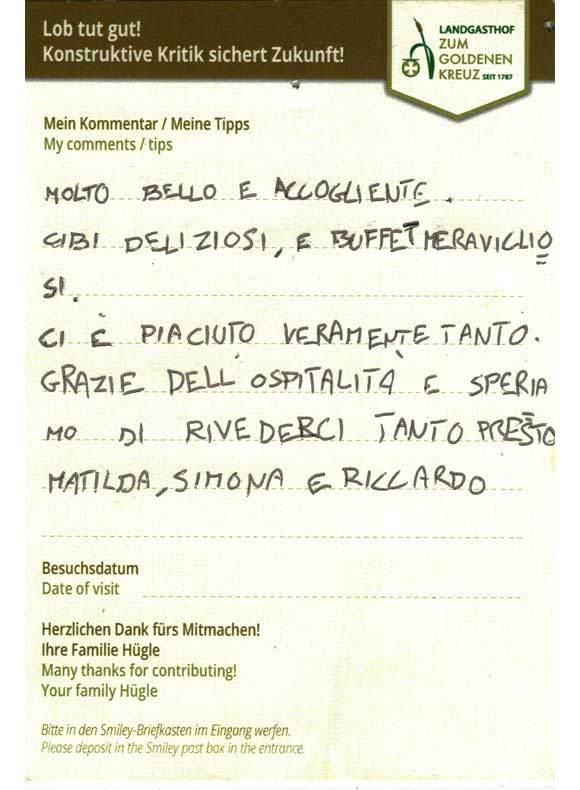 Lob tut gut!
Konstruktive Kritik sichert Zukunft!
LANDGASTHOF
ZUM
GOLDENEN
KREUZ SEIT 1787
Mein Kommentar / Meine Tipps
My comments / tips
MOLTO BELLO E ACCOGLIENTE.
CIBI DELIZIOSI, E BUFFET MERAVIGLIO
SI.
CI È PIACIUTO VERAMENTE TANTO.
GRAZIE DELL'OSPITALITÀ E SPERIA
MO DI RIVEDERCI TANTO PRESTO
MATILDA, SIMONA E RICCARDO
Besuchsdatum
Date of visit
Herzlichen Dank fürs Mitmachen!
Ihre Familie Hügle
Many thanks for contributing!
Your family Hügle
Bitte in den Smiley-Briefkasten im Eingang werfen.
Please deposit in the Smiley post box in the entrance.